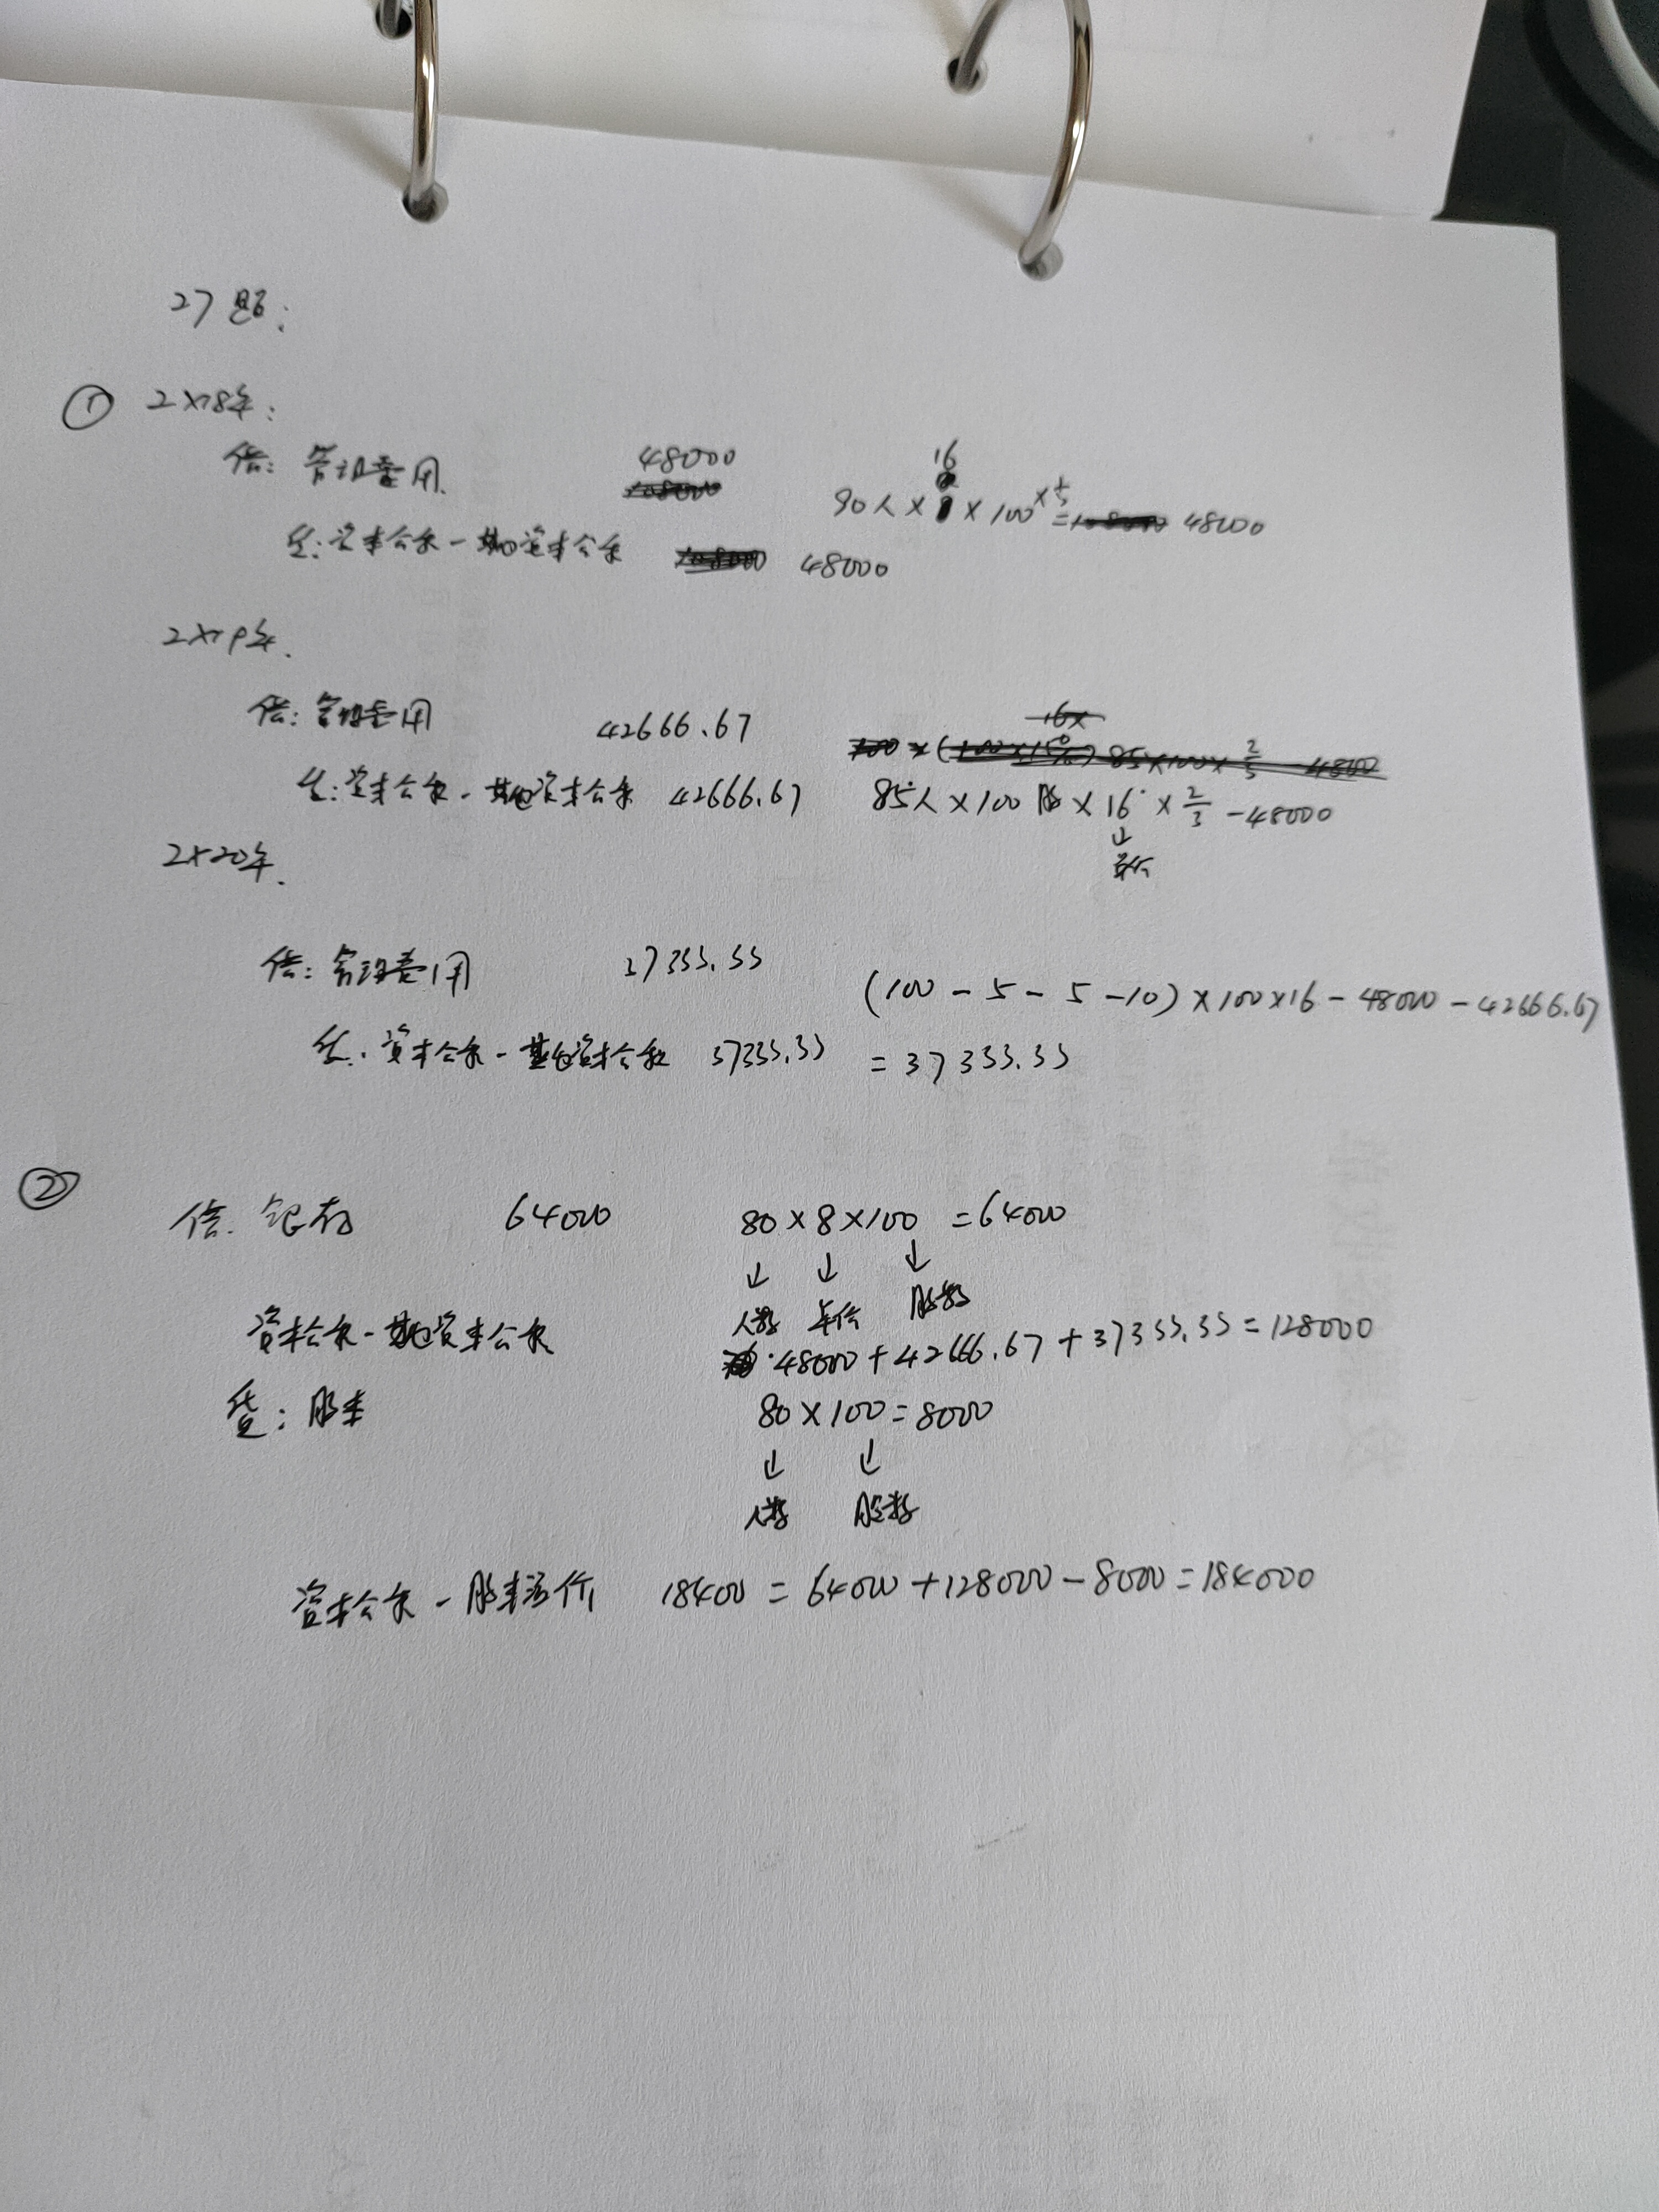 27题:
① 2×18年:
48000 16
借: 管理费用 90人× ×100×⅓= 48000
贷: 资本公积-其他资本公积 48000
2×19年.
借: 管理费用 42666.67
贷: 资本公积-其他资本公积 42666.67 85人×100股×16×2/3-48000
↓
单价
2×20年.
借: 管理费用 37333.33 (100-5-5-10)×100×16-48000-42666.67
贷: 资本公积-其他资本公积 37333.33 =37333.33
② 借. 银存 64000 80×8×100=64000
↓ ↓ ↓
人数 单价 股数
资本公积-其他资本公积 48000+42666.67+37333.33=128000
贷: 股本 80×100=8000
↓ ↓
人数 股数
资本公积-股本溢价 18400=64000+128000-8000=184000